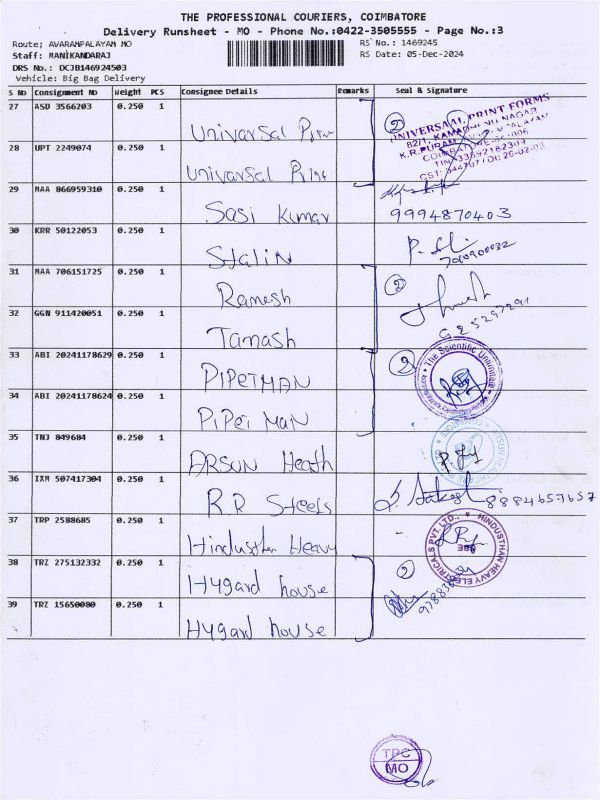 THE PROFESSIONAL COURIERS, COIMBATORE
Delivery Runsheet - MO - Phone No.:0422-3505555 - Page No.:3
Route; AVARAMPALAYAM MO
RS No.: 1469245
Staff: MANIKANDARAJ
RS Date: 05-Dec-2024
DRS No.: DCJB146924503
Vehicle: Big Bag Delivery
S No Consignment No Weight PCS Consignee Details Remarks Seal & Signature
27 ASD 3566203 0.250 1
28 UPT 2249074 0.250 1
29 MAA 866959310 0.250 1 Sasi Kumar 9994870403
30 KRR 50122053 0.250 1 Stalin
31 MAA 706151725 0.250 1 Ramesh 2
32 GGN 911420051 0.250 1 Tamash
33 ABI 20241178629 0.250 1 PIPETMAN 2
34 ABI 20241178624 0.250 1 PiPet MAN
35 TNJ 849684 0.250 1 ARSUN Heath
36 IXM 507417304 0.250 1 R.R Steels 8884657657
37 TRP 2588685 0.250 1 Hindusthan Heavy
38 TRZ 275132332 0.250 1 Hygard house 2
39 TRZ 15650080 0.250 1 Hygard house
UNIVERSAAL PRINT FORMS
82/1, KAMADHENU NAGAR
HINDUSTHAN HEAVY ELECTRICALS PVT. LTD.,
CBE
TPC
MO